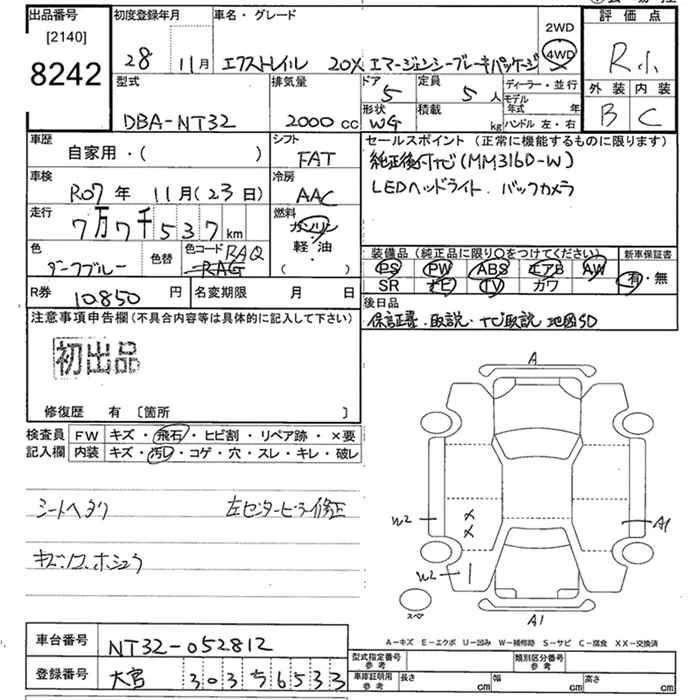 出品番号
[2140]
8242
初度登録年月
28 11月
車名・グレード
エクストレイル 20X エマージェンシーブレーキパッケージ
2WD
4WD
評価点
R小
外装 内装
B C
型式
DBA-NT32
排気量
2000 cc
ドア
5
定員
5 人
形状
WG
積載
kg
ディーラー・並行
モデル年式 年
ハンドル 左・右
車歴
自家用・( )
シフト
FAT
車検
R07年 11月(23日)
冷房
AAC
走行
7万7千537km
燃料
ガソリン
軽・油
( )
色
ダークブルー
色替
色コード RAQ
RAG
R券
10.850 円
名変期限 月 日
セールスポイント(正常に機能するものに限ります)
純正後付TV(MM316D-W)
LEDヘッドライト. バックカメラ
装備品(純正品に限り○をつけてください)
PS PW ABS エアB AW
SR ナビ TV カワ
新車保証書
有・無
後日品
保証書.取説.TV取説 地図SD
注意事項申告欄(不具合内容等は具体的に記入して下さい)
初出品
修復歴 有 [箇所 ]
検査員
記入欄
FW キズ・飛石・ヒビ割・リペア跡・×要
内装 キズ・汚レ・コゲ・穴・スレ・キレ・破レ
シートヘタリ 左センターピラー修正
A
W2
A1
W2
スペア
A1
A-キズ E-エクボ U-凹み W-補修跡 S-サビ C-腐食 XX-交換済
車台番号
NT32-052812
登録番号
大宮 303 ち 6533
型式指定番号
参考
類別区分番号
参考
車庫証明用
参考
長さ cm
幅 cm
高さ cm